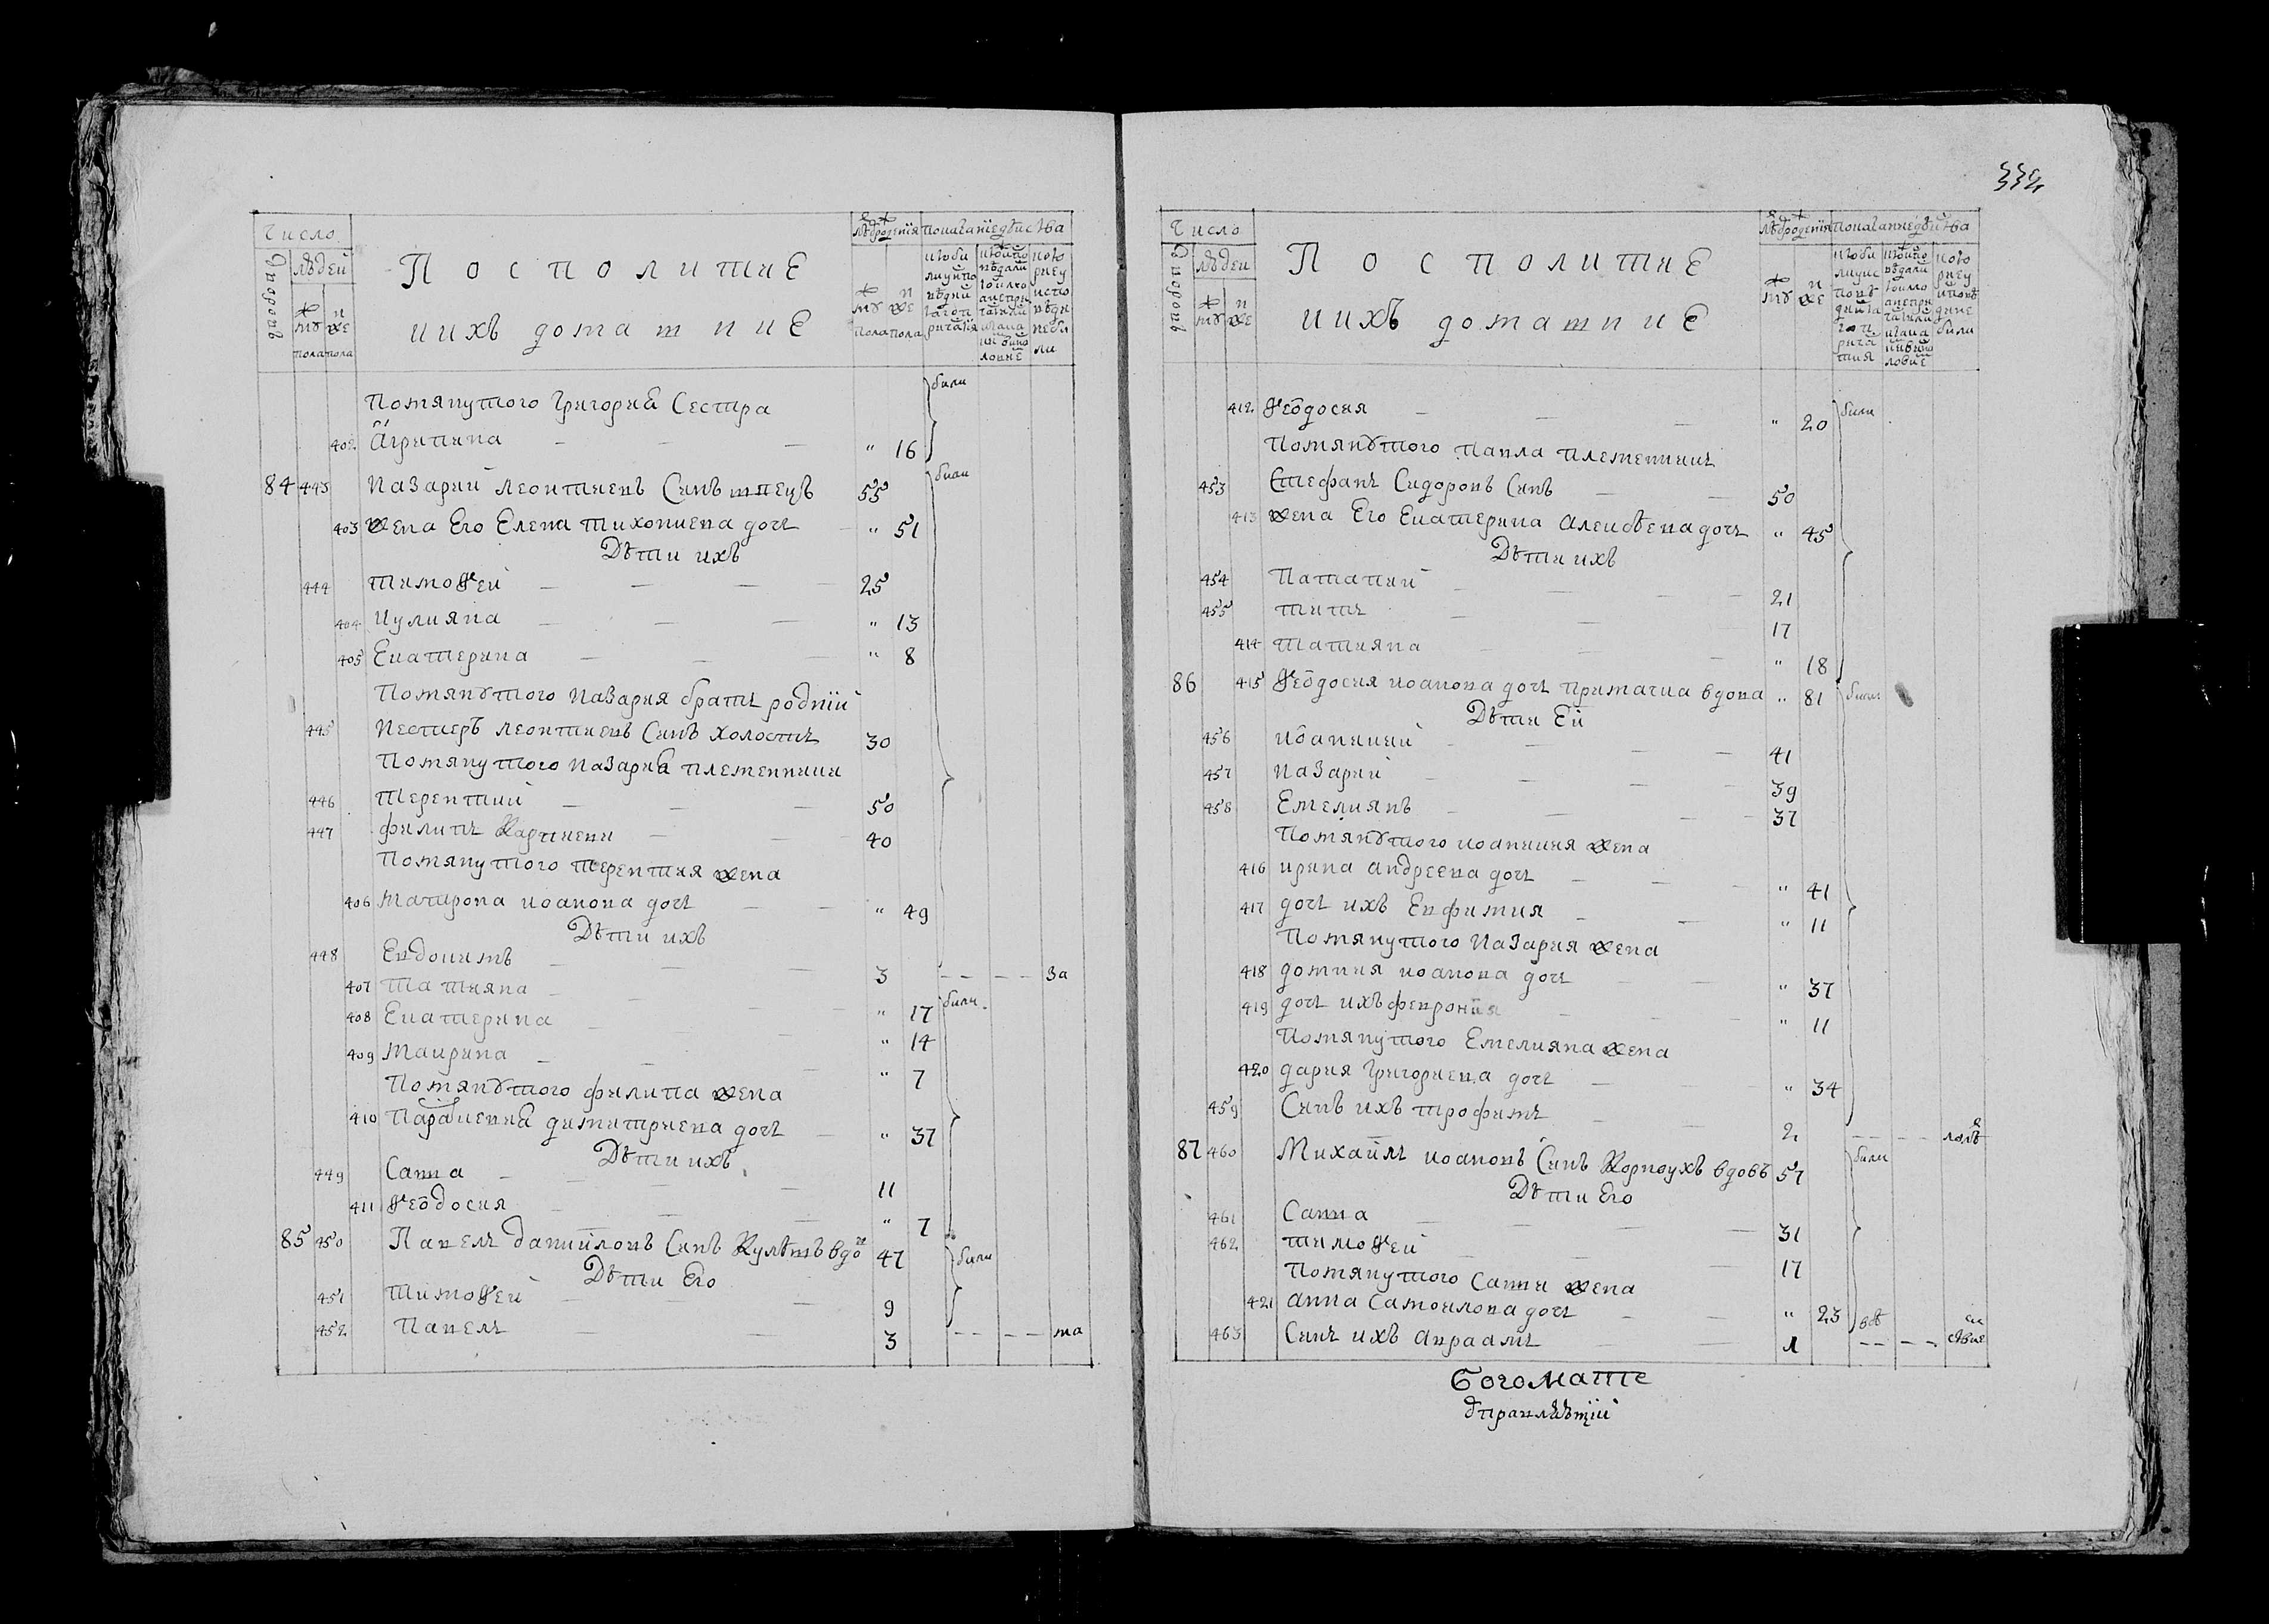 Число
Дворовъ
людей
муж
же
пола пола
Посполитие
и ихъ домашние
помянутого григория Сестра
402 агрипина " 16 били
84 443 назарий леонтиевъ Синъ швецъ 55 били
403 жена Его Елена тихониева дочь " 51
Дѣти ихъ
444 тимофей 25
404 иулияна " 13
405 Екатерина " 8
помянутого назария братъ родній
445 нестеръ леонтиевъ Синъ холостъ 30
помянутого назария племенники
446 терентий 50
447 филипъ Карпиеви 40
помянутого терентия жена
406 матрона иоанова дочь " 49
Дѣти ихъ
448 Евдокимъ 3 за
407 татияна " 17 били
408 Екатерина " 14
409 маврина " 7
помянутого филипа жена
410 параскевия димитриева дочь " 37
Дѣти ихъ
449 Савва 11
411 феодосия " 7
85 450 Павелъ даниловъ Синъ Кулѣшъ вдо 47 били
Дѣти Его
451 тимофей 9
452 Павелъ 3 ма
334
Число
Дворовъ
людей
муж
же
Посполитие
и ихъ домашние
412 феодосия " 20 били
помянутого павла племенникъ
453 Стефанъ Сидоровъ Синъ 50
413 жена Его Екатерина алексѣева дочь " 45
Дѣти ихъ
454 патапий 21
455 титъ 17
414 татияна " 18
86 415 феодосия иоанова дочь примачка вдова " 81 били
Дѣти Ей
456 иоаникий 41
457 назарий 39
458 Емелиянъ 37
помянутого иоаникия жена
416 ирина андреева дочь " 41
417 дочь ихъ Евфимия " 11
помянутого назария жена
418 домния иоанова дочь " 37
419 дочь ихъ феврония " 11
помянутого Емелияна жена
420 дария григориева дочь " 34
459 Синъ ихъ трофимъ 2
87 460 Михаилъ иоановъ Синъ Корноухъ вдовъ 57 били
Дѣти Его
461 Савва 31
462 тимофей 17
помянутого Саввы жена
421 анна Самоилова дочь " 23
463 Синъ ихъ авраамъ 1